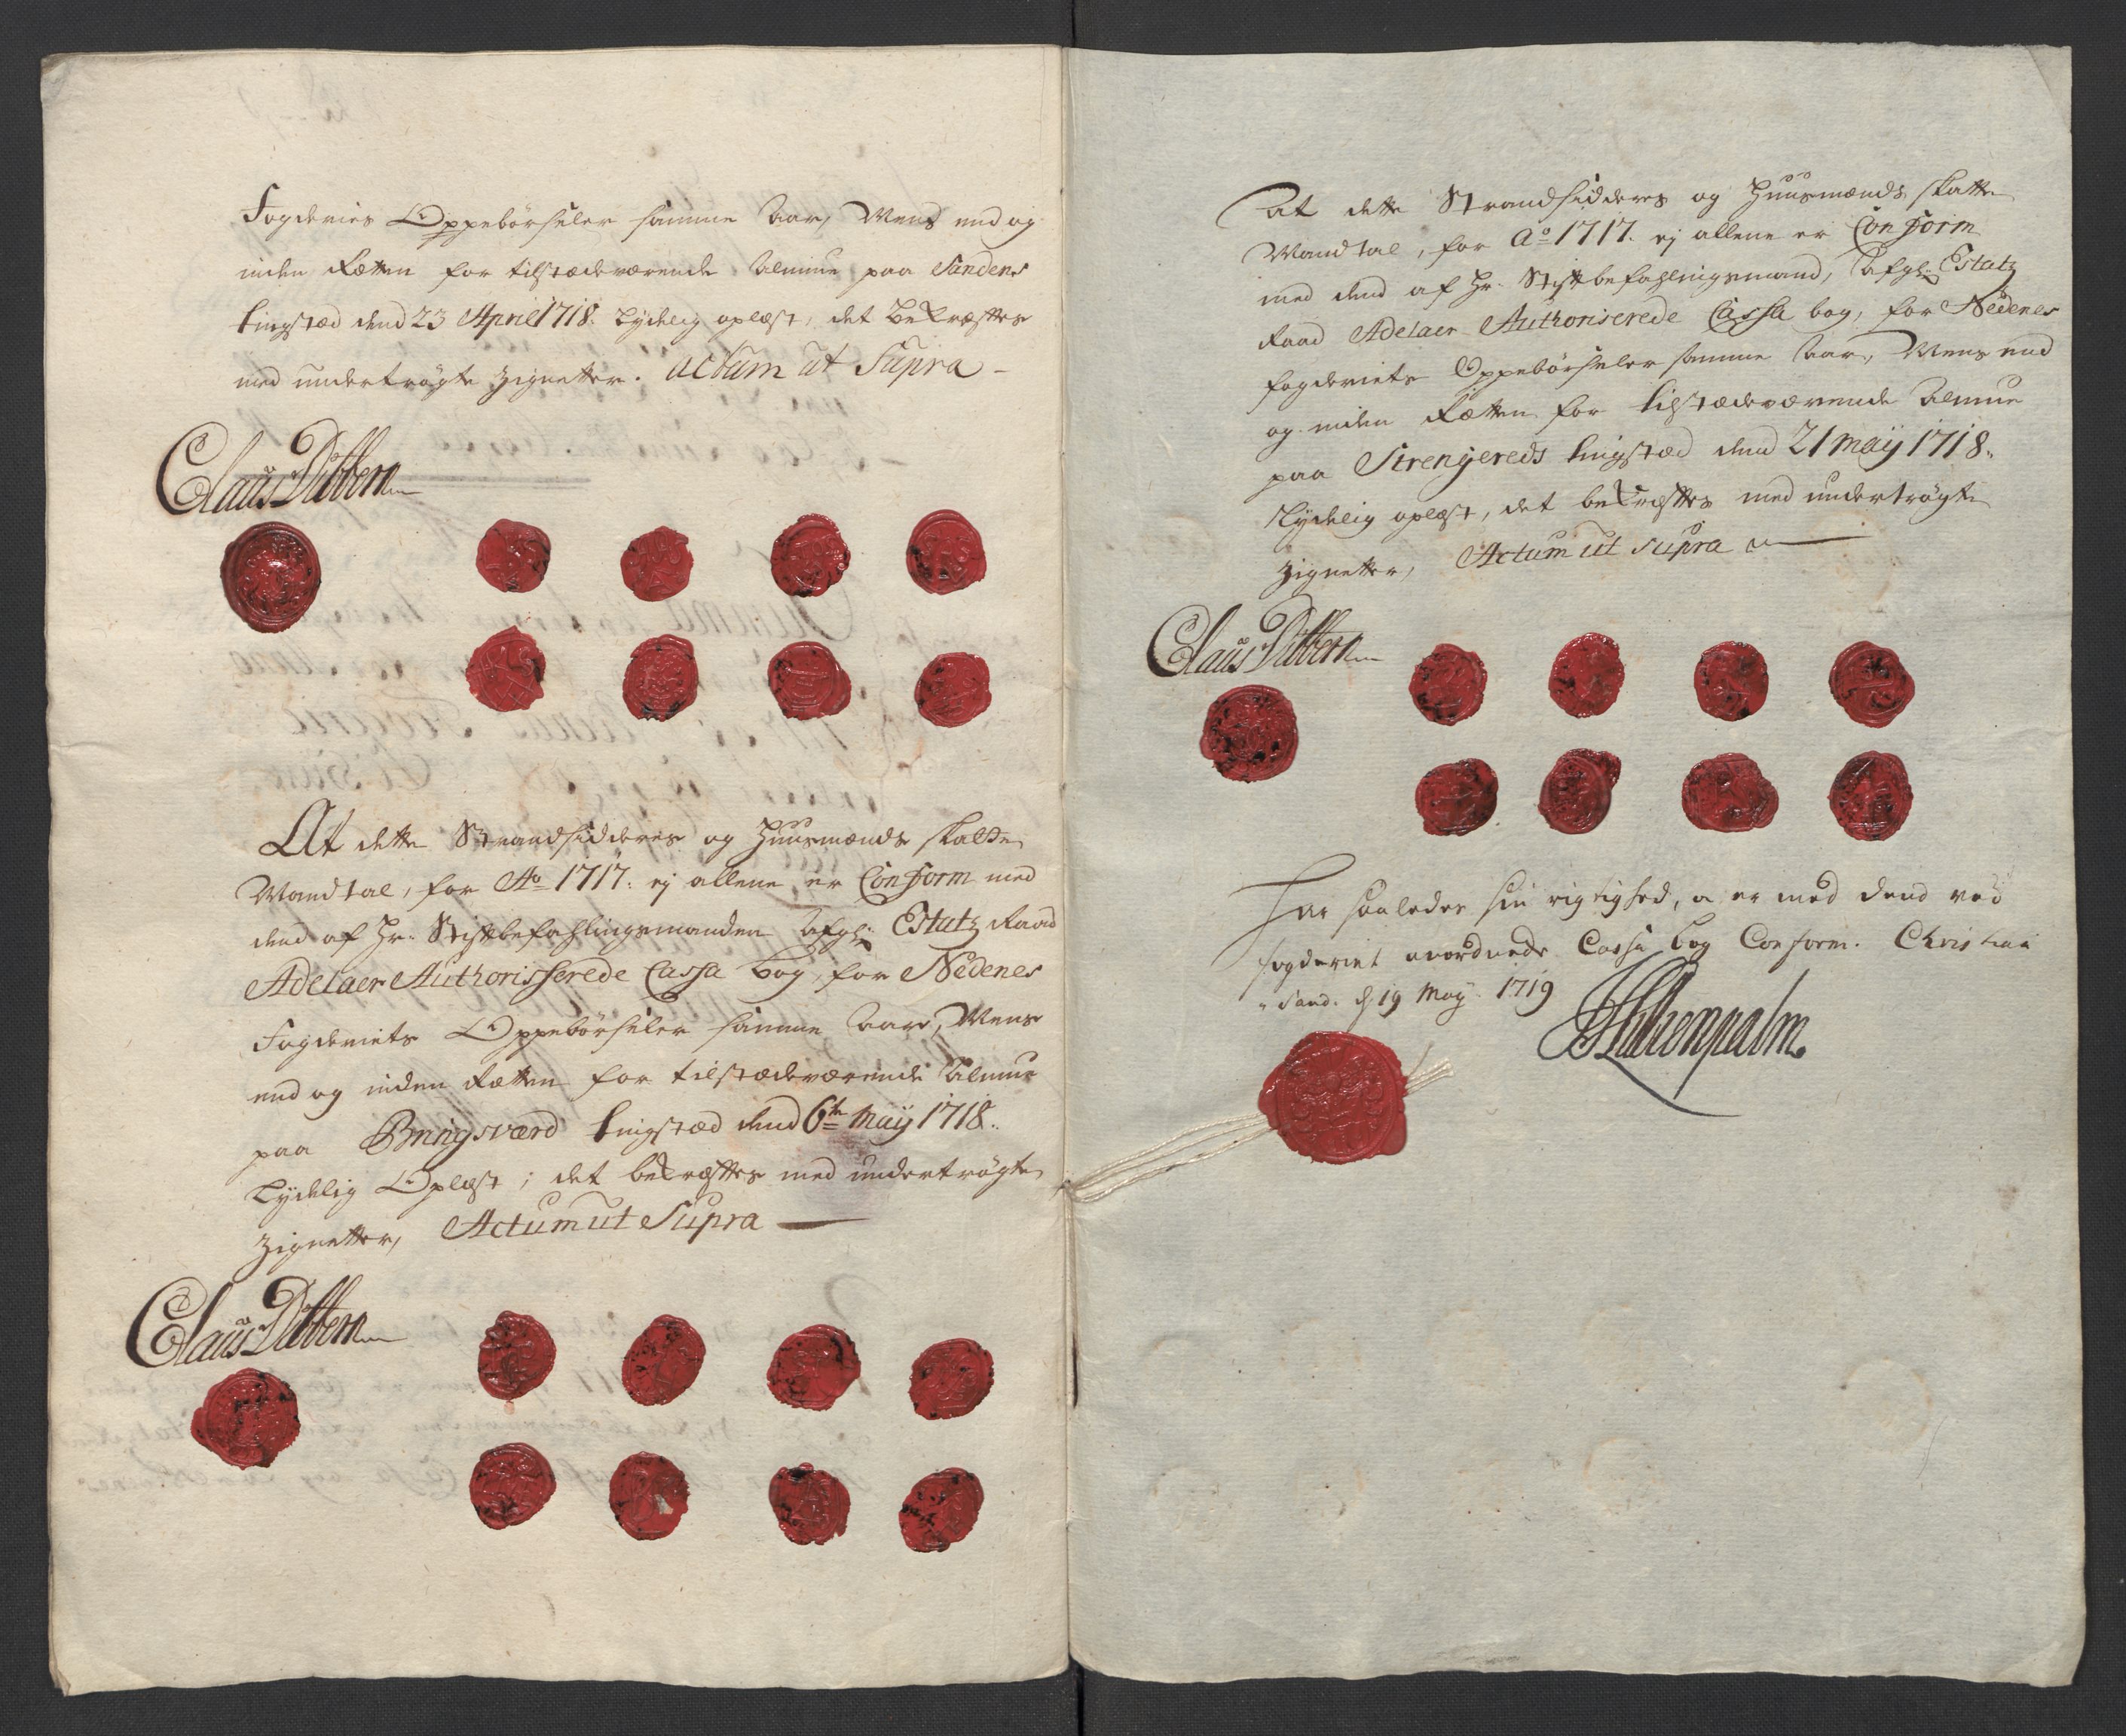 Fogderies Oppebörseler samme Aar, Mens end og
inden Rætten for tilstædeværende Almue paa Sandnes
tingstæd dend 23 April 1718. Lydelig oplæst, det bekræftes
med undertrögte Zignetter. Actum ut Supra
Claus Dibbern
At dette Strandsidderes og Huusmænds skatte
Mandtal, for Ao 1717. ej allene er Conform med
dend af Hr. Stiftbefahlingsmanden Afgl: Estatz Raad
Adelaer Authorisserede Cassa bog, for Nedenes
Fogderiets Oppebörseler samme Aar, Mens
end og inden Rætten for tilstædeværende Almue
paa Bringsværd tingstæd dend 6te May 1718.
Lydelig Oplæst; det bekræftes med undertrögte
Zignetter, Actum ut Supra
Claus Dibbern
At dette Strandsidderes og Huusmænds skatte
Mandtal, for Ao 1717. ej allene er Conform
med dend af Hr. Stiftbefahlingsmand, Afgl: Estatz
Raad Adelaer Authoriserede Cassa bog, for Nedenes
fogderiets Oppebörseler samme Aar, Mens end
og inden Rætten for tilstædeværende Almue
paa Strengereds tingstæd dend 21 May 1718.
Lydelig oplæst, det bekræftes med undertrögte
Zignetter, Actum ut supra
Claus Dibbern
Har saaledes sin rigtighed, a er med dend ved
fogderiet anordnede Cassa bog Conform. Christian
Sand. d 19 May. 1719